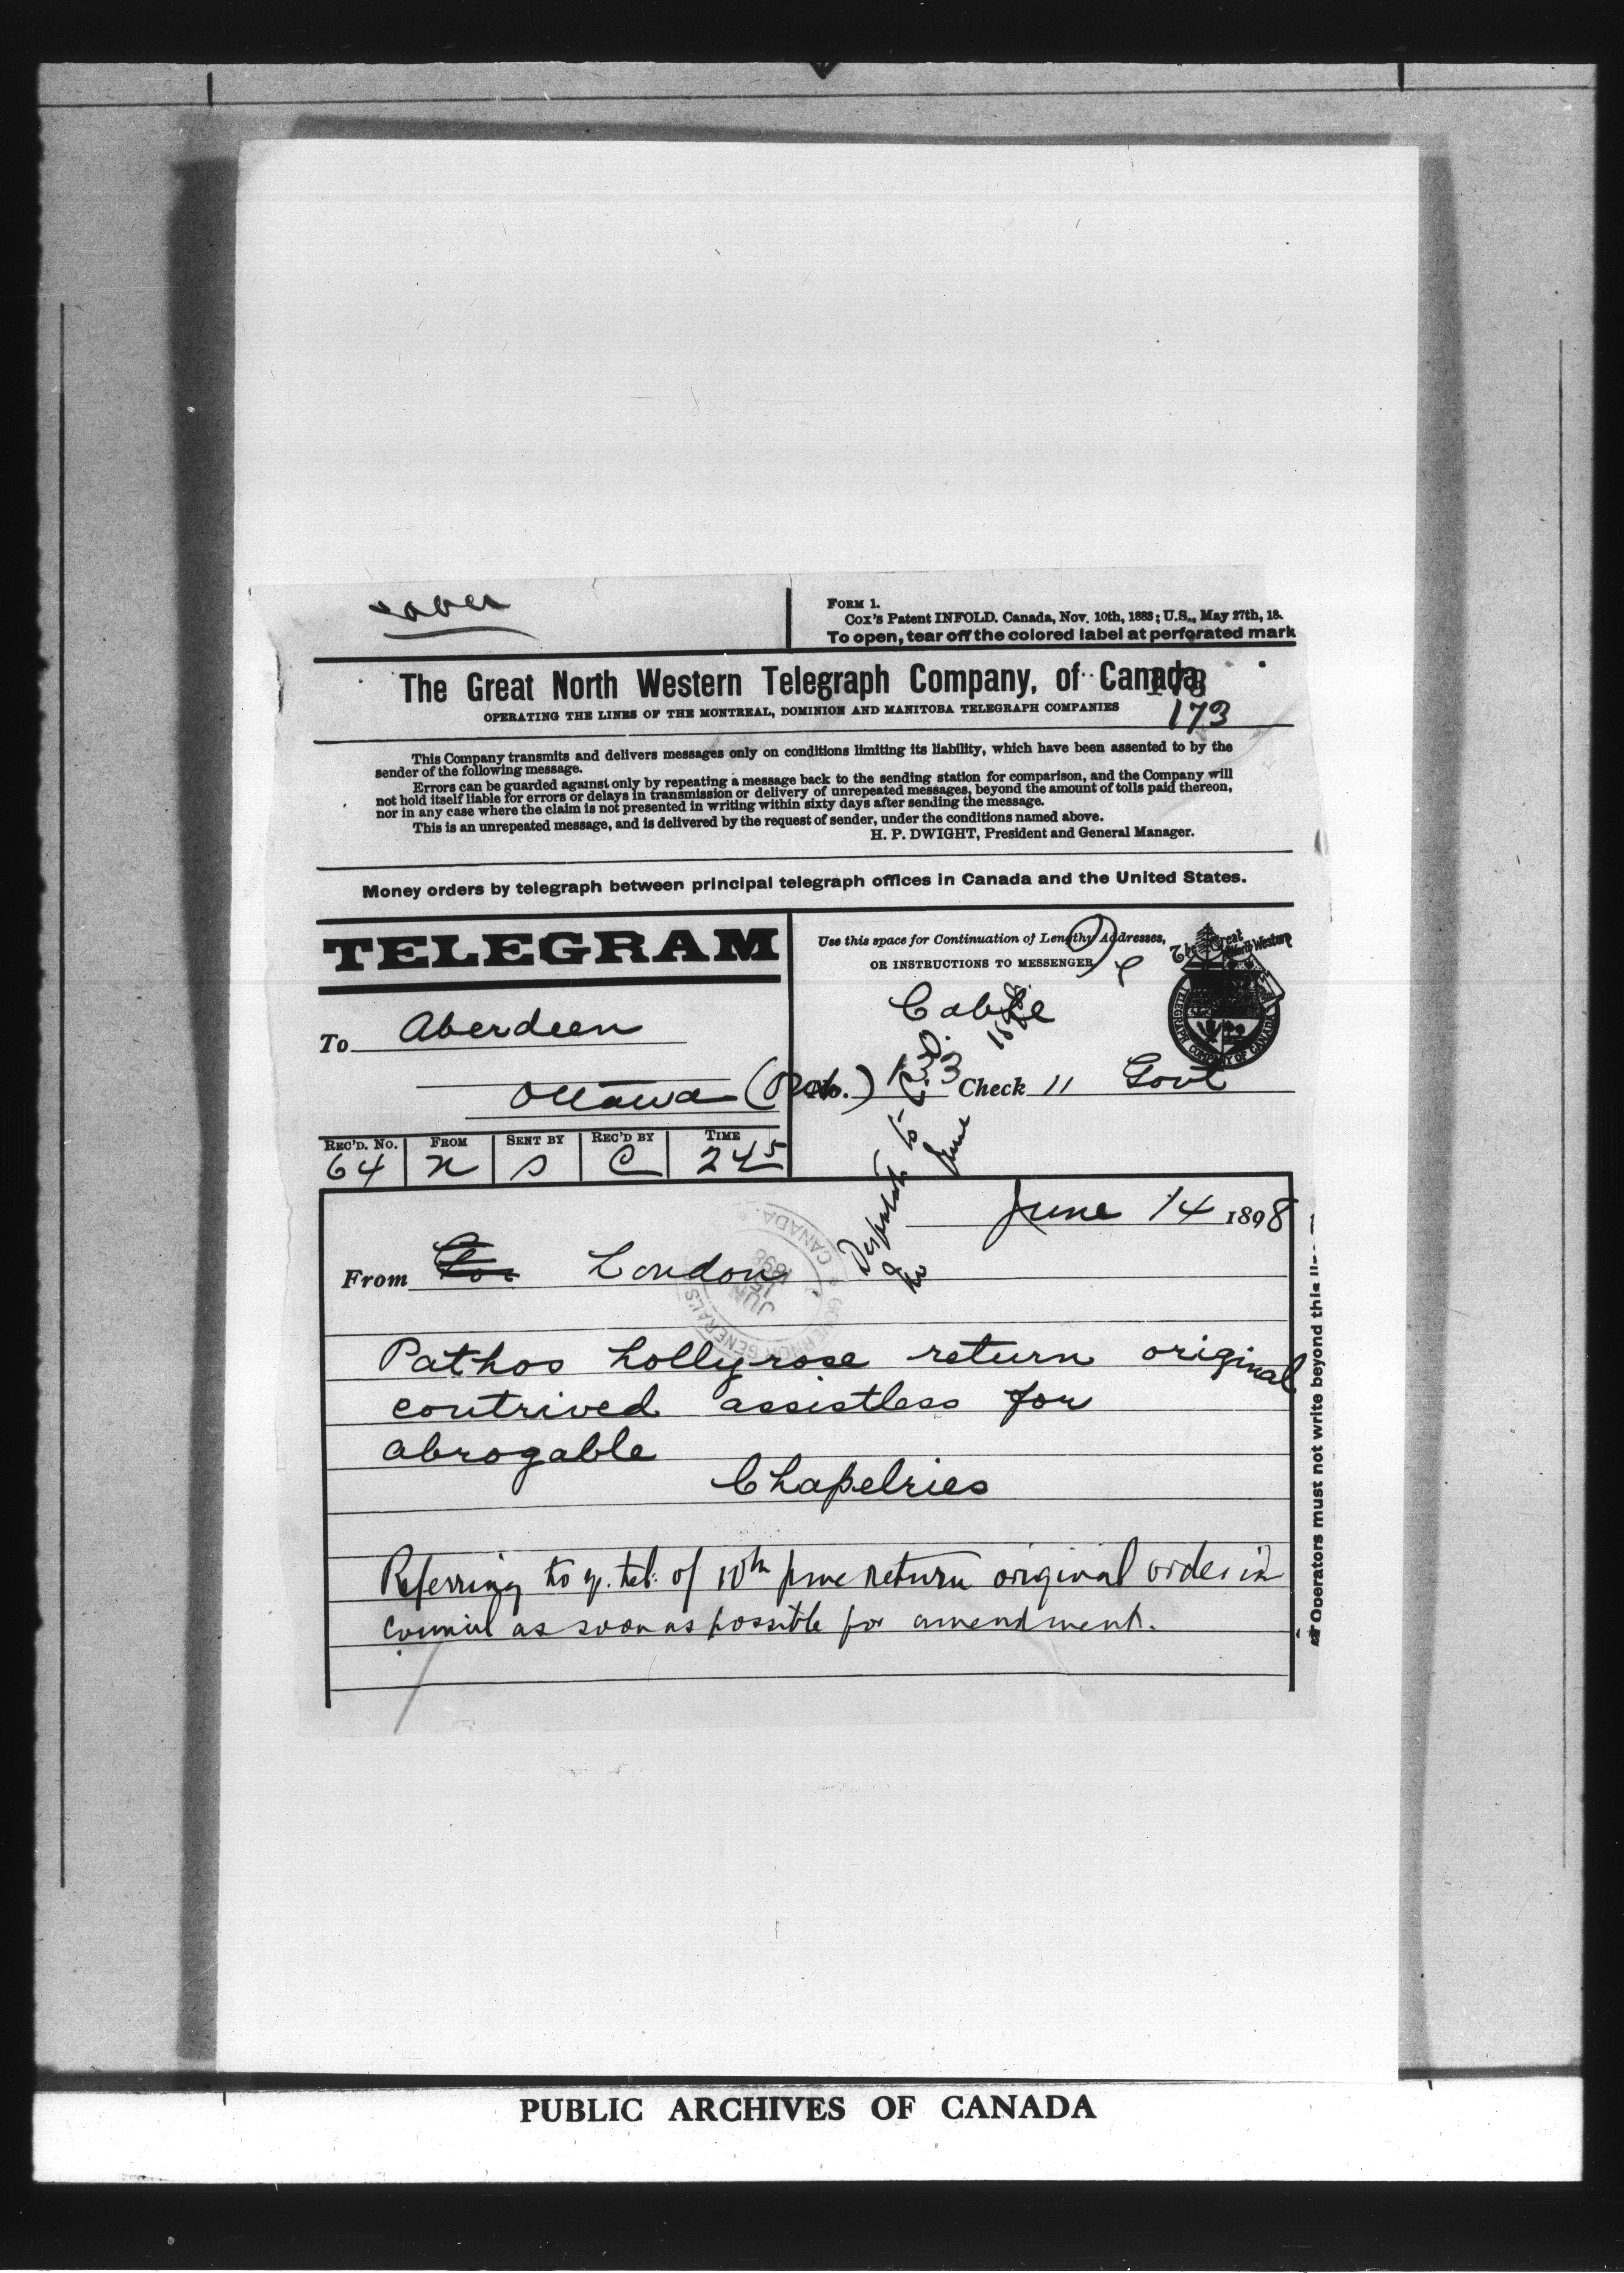 over
FORM 1.
Cox's Patent INFOLD. Canada, Nov. 10th, 1883; U.S., May 27th, 18.
To open, tear off the colored label at perforated mark
The Great North Western Telegraph Company, of Canada
173
OPERATING THE LINES OF THE MONTREAL, DOMINION AND MANITOBA TELEGRAPH COMPANIES
173
This Company transmits and delivers messages only on conditions limiting its liability, which have been assented to by the
sender of the following message.
Errors can be guarded against only by repeating a message back to the sending station for comparison, and the Company will
not hold itself liable for errors or delays in transmission or delivery of unrepeated messages, beyond the amount of tolls paid thereon,
nor in any case where the claim is not presented in writing within sixty days after sending the message.
This is an unrepeated message, and is delivered by the request of sender, under the conditions named above.
H. P. DWIGHT, President and General Manager.
Money orders by telegraph between principal telegraph offices in Canada and the United States.
TELEGRAM
Use this space for Continuation of Lengthy Addresses,
OR INSTRUCTIONS TO MESSENGER
The Great North Western
TELEGRAPH COMPANY OF CANADA
Cable
To Aberdeen
Ottawa
No. Check 11 Govt
REC'D. No. FROM SENT BY REC'D BY TIME
64 n S C 245
Despatch to
June
June 14 1898
From London
GOVERNOR GENERAL'S
CANADA
JUN 15 1898
Pathos hollyrose return original
contrived assistless for
abrogable
Chapelries
Referring to y. tel. of 10th June return original order in
Council as soon as possible for amendment.
Operators must not write beyond this
PUBLIC ARCHIVES OF CANADA